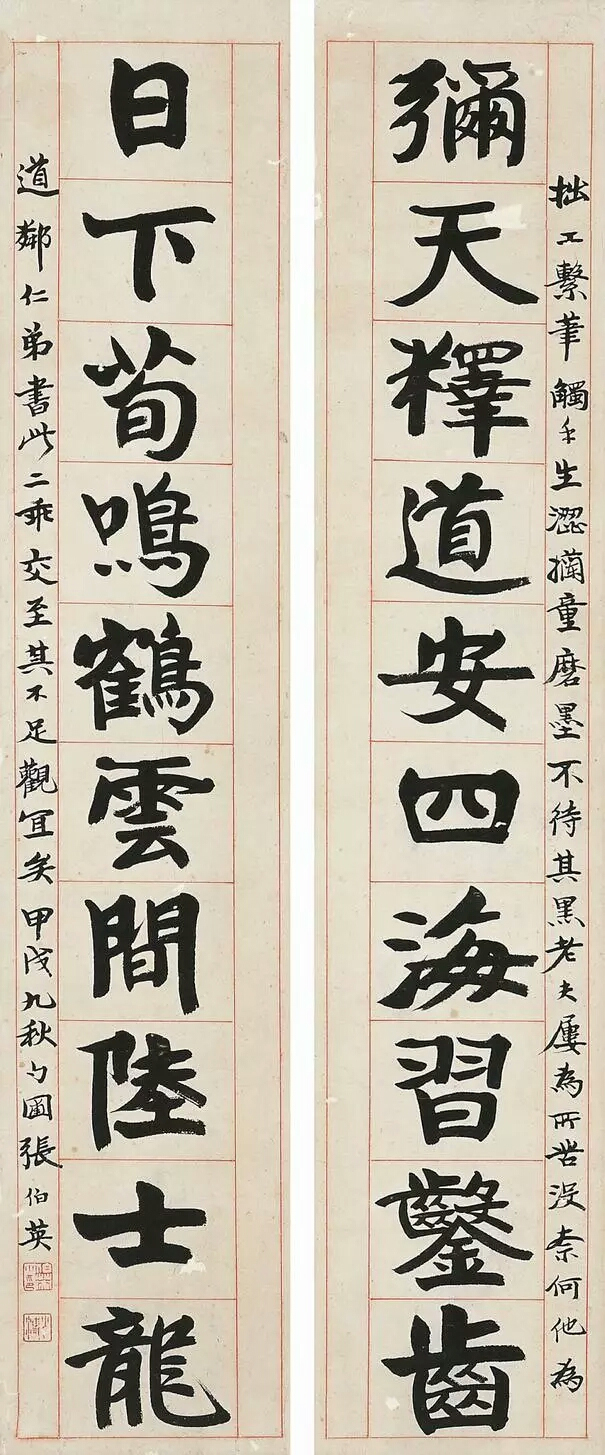 拙工繫筆觸手生澀童磨墨不待其黑老夫屢為所苦没柰何他為
彌天釋道安四海習鑿齒
日下荀鳴鶴雲間陸士龍
道鄰仁弟書此二乖交至其不足觀冝矣甲戌九秋勺圃張伯英